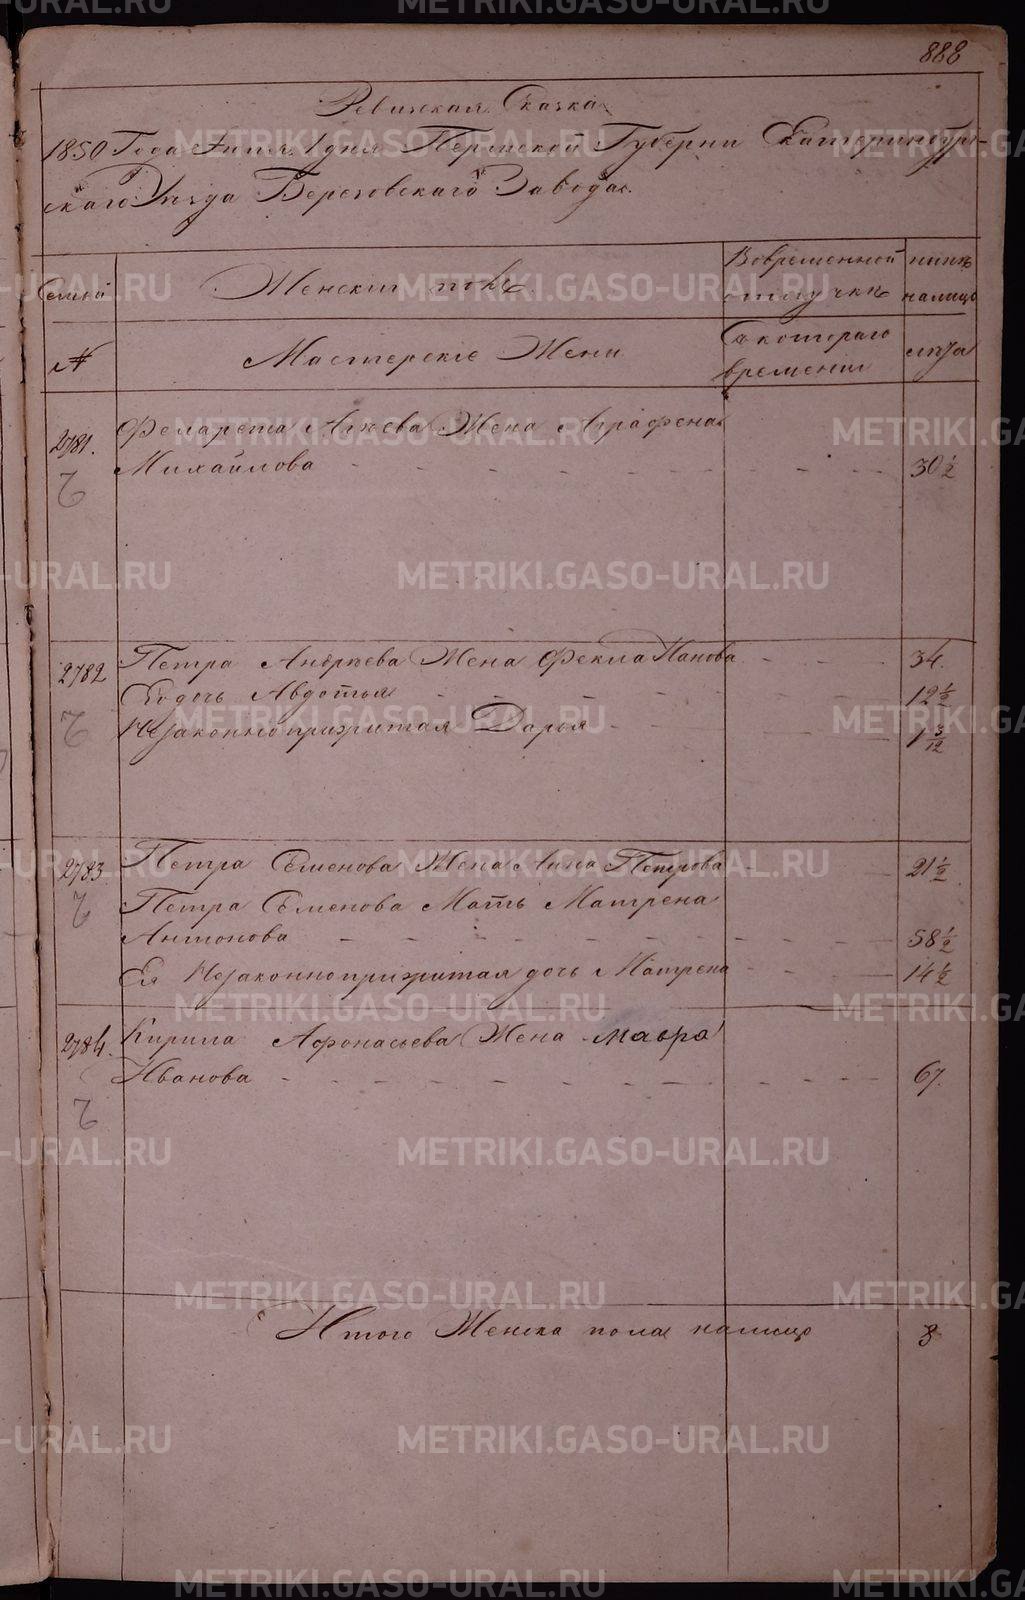 888
Ревижская Сказка
1850 Года Июля 1 дня Пермской Губернии Екатеринбург-
скаго Уезда Березовскаго Завода.
Семей
Женский полъ
Вовременной
отлучке
ныне
налицо
№
Мастерские Жены
Съ котораго
времени
лета
2781.
Филарета Жена Аграфена
Михайлова
30 1/2
2782
Петра Андреева Жена Фекла Панова
34.
Его дочь Авдотья
12 1/2
Незаконноприжитая Дарья
1 3/12
2783.
Петра Семенова Жена Анна Петрова
21 1/2
Петра Семенова Мать Матрена
Антонова
58 1/2
Ея Незаконноприжитая дочь Матрена
14 1/2
2784.
Кирила Афонасьева Жена Мавра
Иванова
67.
Итого Женска пола налицо
8
METRIKI.GASO-URAL.RU